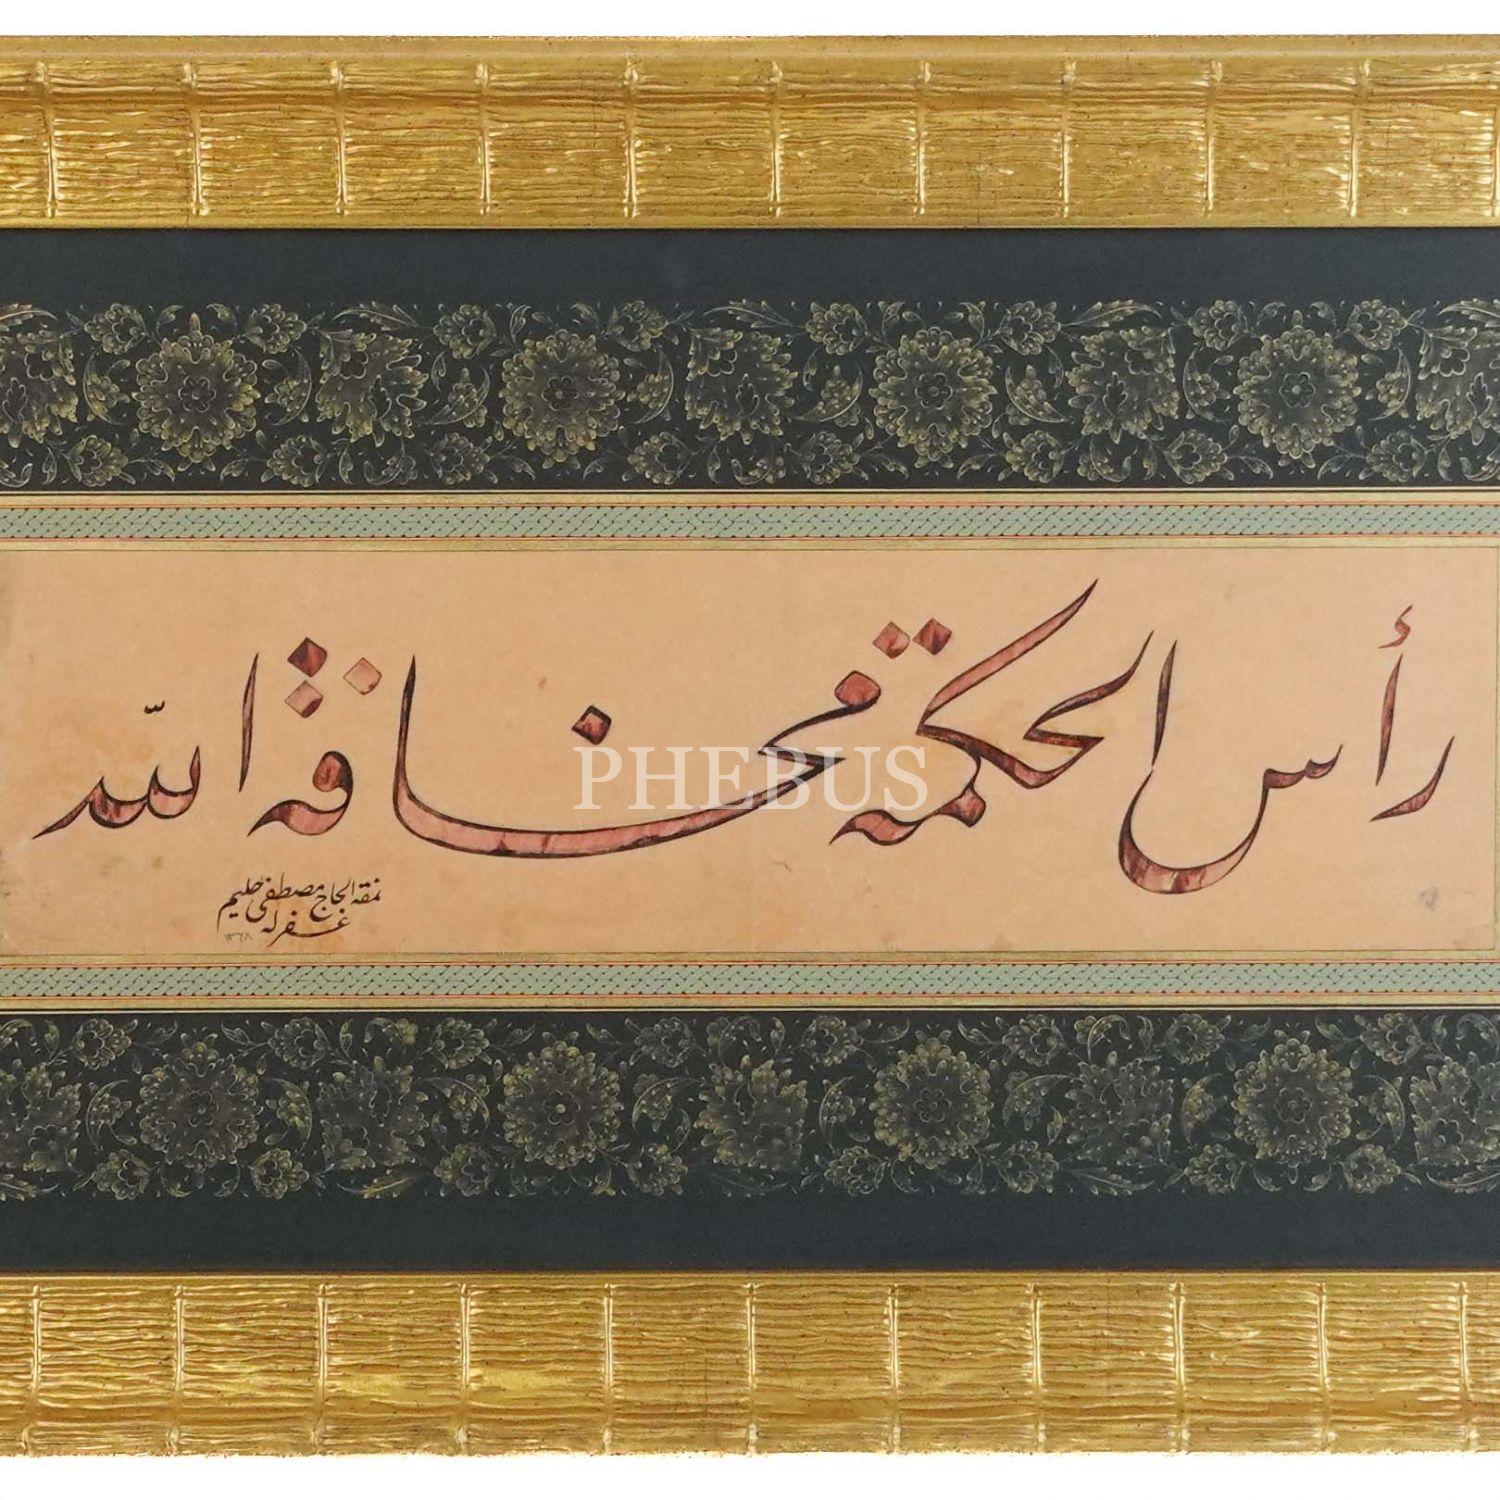 رأس الحكمة مخافة الله
PHEBUS
نمقه الحاج مصطفى حليم
غفر له
١٣٦٨